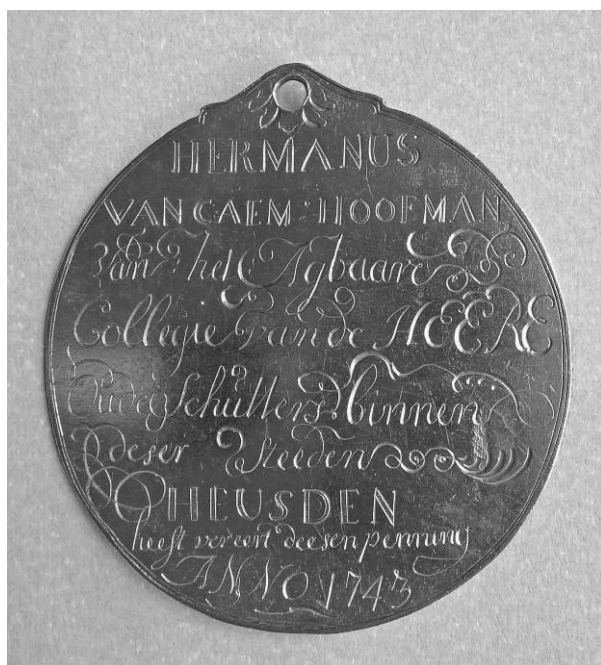 HERMANUS
VAN GAEM: HOOFMAN
van: het Agbaare
Collegie van de HEERE
Oude Schutters binnen
deser Steeden
HEUSDEN
heeft vereert deesen penning
ANNO 1743